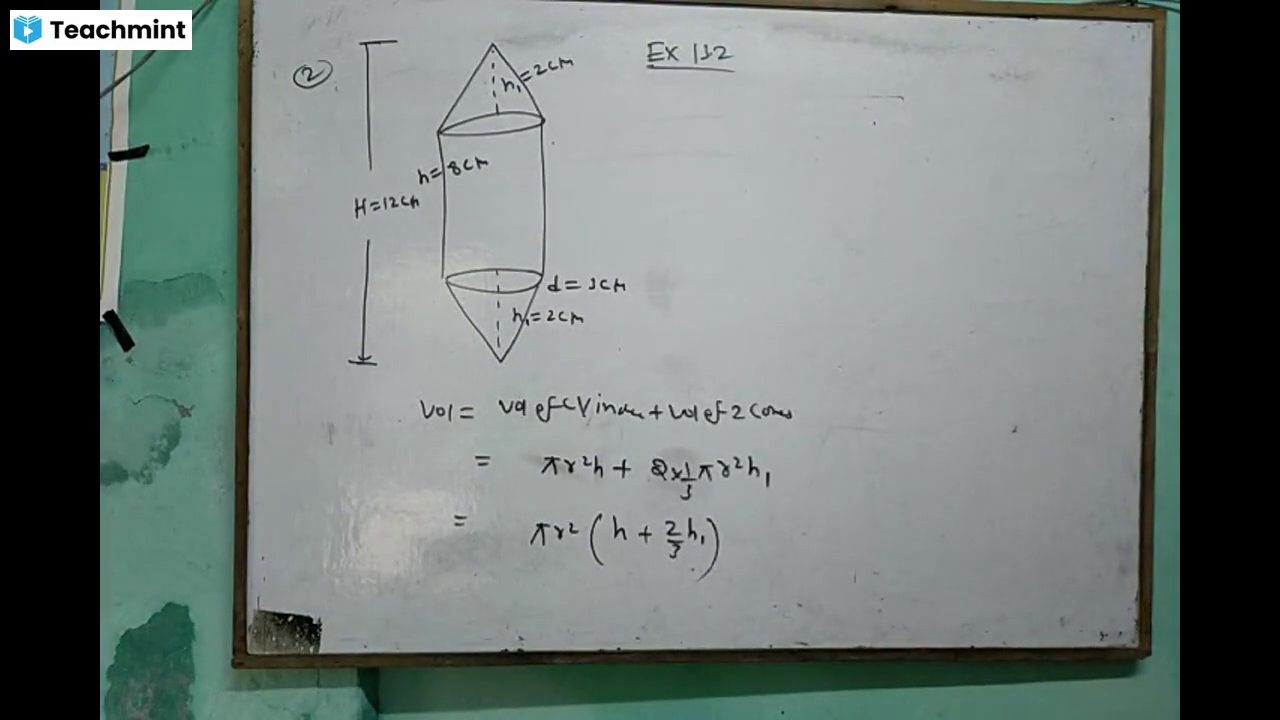 Teachmint
Ex 13.2
②
h₁=2cm
h=8cm
H=12cm
d=3cm
h₁=2cm
Vol = Vol of Cylinder + Vol of 2 Cones
= πr²h + 2×1/3πr²h₁
= πr²(h + 2/3h₁)